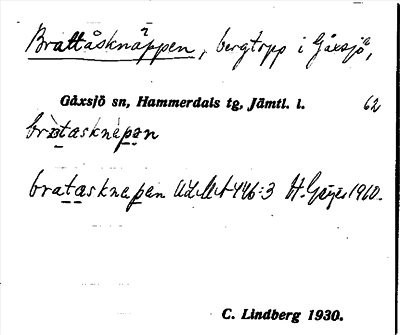 Brattåsknäppen, bergtopp i Gåxsjö,
Gåxsjö sn, Hammerdals tg, Jämtl. l. 62
bratasknapan
bratasknapen ULMA 446:3 H. Geijer 1910.
C. Lindberg 1930.